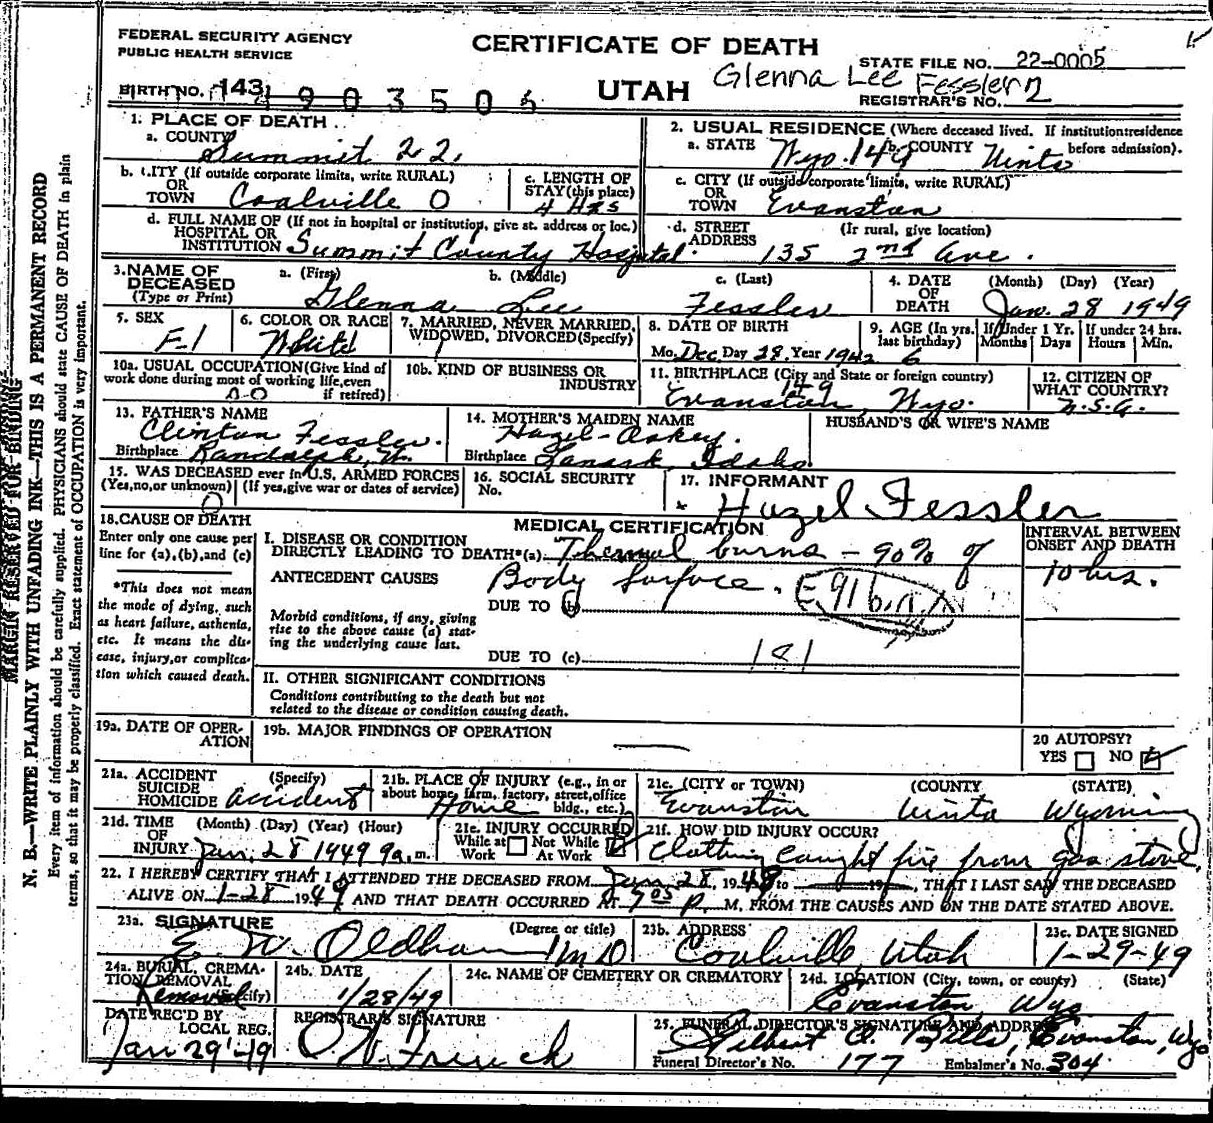 FEDERAL SECURITY AGENCY
PUBLIC HEALTH SERVICE
CERTIFICATE OF DEATH
STATE FILE NO. 22-0005
BIRTH NO. 143
UTAH
Glenna Lee Fessler
REGISTRAR'S NO. 2
1. PLACE OF DEATH
a. COUNTY Summit 22.
2. USUAL RESIDENCE (Where deceased lived. If institution: residence before admission).
a. STATE Wyo. 149 b. COUNTY Uinta
b. CITY (If outside corporate limits, write RURAL) OR TOWN Coalville O
c. LENGTH OF STAY (this place) 4 Hrs
c. CITY (If outside corporate limits, write RURAL) OR TOWN Evanston
d. FULL NAME OF (If not in hospital or institution, give st. address or loc.) HOSPITAL OR INSTITUTION Summit County Hospital.
d. STREET ADDRESS (If rural, give location) 135 2nd Ave.
3. NAME OF DECEASED (Type or Print)
a. (First) Glenna b. (Middle) Lee c. (Last) Fessler
4. DATE OF DEATH (Month) (Day) (Year) Jan. 28 1949
5. SEX F-1
6. COLOR OR RACE White
7. MARRIED, NEVER MARRIED, WIDOWED, DIVORCED (Specify) 1
8. DATE OF BIRTH Mo. Dec Day 28 Year 1942
9. AGE (In yrs. last birthday) 6
If Under 1 Yr. Months Days
If under 24 hrs. Hours Min.
10a. USUAL OCCUPATION (Give kind of work done during most of working life, even if retired)
10b. KIND OF BUSINESS OR INDUSTRY
11. BIRTHPLACE (City and State or foreign country) 149 Evanston, Wyo.
12. CITIZEN OF WHAT COUNTRY? U.S.A.
13. FATHER'S NAME Clinton Fessler.
Birthplace Randolph, U.
14. MOTHER'S MAIDEN NAME Hazel-Oakey.
Birthplace Lanark, Idaho
HUSBAND'S OR WIFE'S NAME
15. WAS DECEASED ever in U.S. ARMED FORCES (Yes, no, or unknown) (If yes, give war or dates of service) O
16. SOCIAL SECURITY No.
17. INFORMANT Hazel Fessler
18. CAUSE OF DEATH
Enter only one cause per line for (a), (b), and (c)
*This does not mean the mode of dying, such as heart failure, asthenia, etc. It means the disease, injury, or complication which caused death.
MEDICAL CERTIFICATION
INTERVAL BETWEEN ONSET AND DEATH
I. DISEASE OR CONDITION DIRECTLY LEADING TO DEATH*(a) Thermal burns - 90% of
Body Surface. 10 hrs.
ANTECEDENT CAUSES
DUE TO (b) E 916
Morbid conditions, if any, giving rise to the above cause (a) stating the underlying cause last.
DUE TO (c) 181
II. OTHER SIGNIFICANT CONDITIONS
Conditions contributing to the death but not related to the disease or condition causing death.
19a. DATE OF OPERATION
19b. MAJOR FINDINGS OF OPERATION
20 AUTOPSY? YES NO
21a. ACCIDENT SUICIDE HOMICIDE (Specify) accident
21b. PLACE OF INJURY (e.g., in or about home, farm, factory, street, office bldg., etc.) Home
21c. (CITY or TOWN) (COUNTY) (STATE) Evanston Uinta Wyoming
21d. TIME OF INJURY (Month) (Day) (Year) (Hour) Jan. 28 1949 9a.m.
21e. INJURY OCCURRED While at Work Not While At Work
21f. HOW DID INJURY OCCUR? Clothing caught fire from gas stove
22. I HEREBY CERTIFY THAT I ATTENDED THE DECEASED FROM Jan 28, 1948 to 19, THAT I LAST SAW THE DECEASED
ALIVE ON 1-28 1949 AND THAT DEATH OCCURRED AT 7:05 P. M. FROM THE CAUSES AND ON THE DATE STATED ABOVE.
23a. SIGNATURE (Degree or title) E. W. Oldham MD
23b. ADDRESS Coalville, Utah
23c. DATE SIGNED 1-29-49
24a. BURIAL, CREMATION, REMOVAL (Specify) Removal
24b. DATE 1/28/49
24c. NAME OF CEMETERY OR CREMATORY
24d. LOCATION (City, town, or county) (State) Evanston Wyo
DATE REC'D BY LOCAL REG. Jan 29'-49
REGISTRAR'S SIGNATURE French
25. FUNERAL DIRECTOR'S SIGNATURE AND ADDRESS Gilbert Bills, Evanston, Wyo
Funeral Director's No. 177 Embalmer's No. 304
MARGIN RESERVED FOR BINDING
N. B.—WRITE PLAINLY WITH UNFADING INK—THIS IS A PERMANENT RECORD
Every item of information should be carefully supplied. PHYSICIANS should state CAUSE OF DEATH in plain
terms, so that it may be properly classified. Exact statement of OCCUPATION is very important.